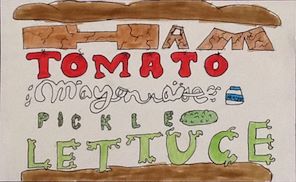 HAM
TOMATO
Mayonnaise
PICKLE
LETTUCE